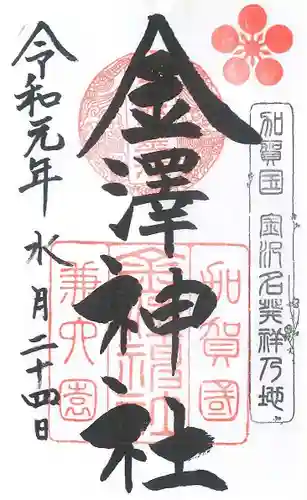 加賀国 金沢名発祥乃地
金澤神社
加賀國
金澤神社
兼六園
令和元年 水月二十四日